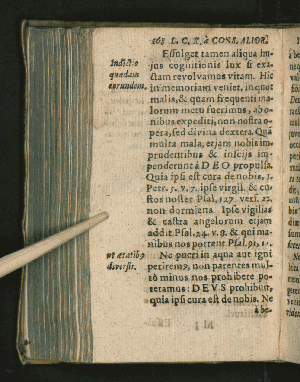 268 L. C. R. à CONS. ALIOR.
Effulget tamen aliqua hu-
jus cognitionis lux si ex-
actam revolvamus vitam. Hic
in memoriam veniet, in quot
malis, & quam frequenti ma-
lorum metu fuerimus, abo-
nibus expediti, non nostra o-
pera, sed divina dextera. Quã
multa mala, ejam nobis im-
prudentibus & insciis im-
penderunt à DEO propulsa.
Quia ipsi est cura de nobis, 1.
Petr. 5. v. 7. ipse virgil. & cu-
stos noster Psal. 127. vers. 12.
non dormiens. Ipse vigilias
& castra angelorum ejam
addit Psal. 24. v. 9. & qui ma-
nibus nos portent Psal. 91. 12.
Ne pueri in aqua aut igni
periremus, non parentes mul-
tò minus nos prohibere po-
teramus: DEUS prohibuit,
quia ipsi cura est de nobis. Ne
à be-
Indictio
quædam
eorundem.
ut ætatibus
diversis.